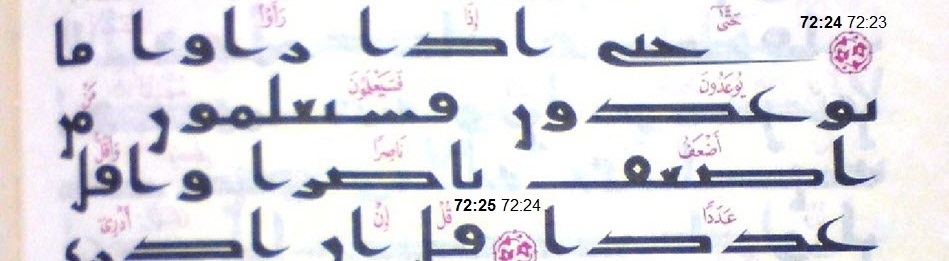 72:24 72:23
حَتَّىٰ إِذَا رَأَوْا
حتى اذا راوا ما
يُوعَدُونَ فَسَيَعْلَمُونَ مَنْ
يوعدون فسيعلمون من
أَضْعَفُ نَاصِرًا وَأَقَلُّ
اضعف ناصرا واقل
72:25 72:24
عَدَدًا قُلْ إِنْ أَدْرِي
عددا قل ان ادري